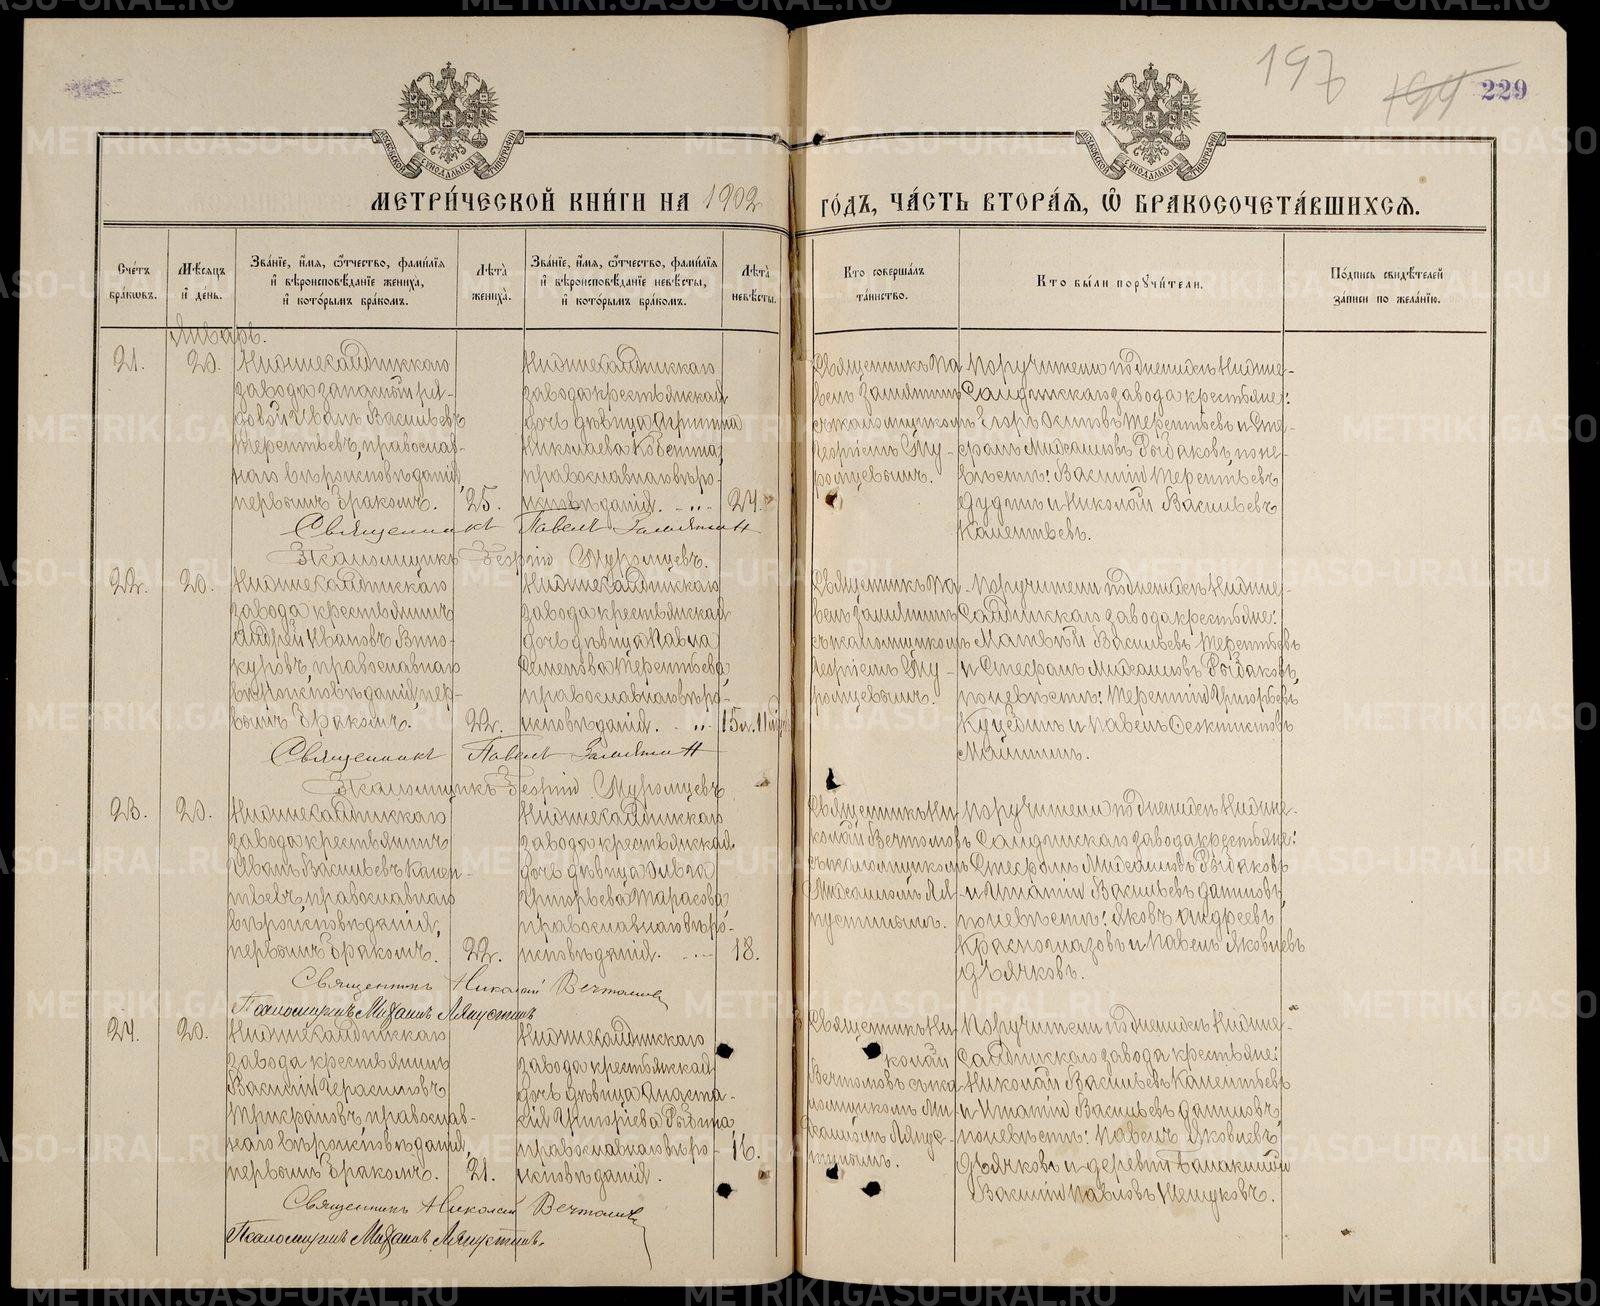 197
194
229
МОСКОВСКОЙ СѴНОДАЛЬНОЙ ТИПОГРАФІИ
МОСКОВСКОЙ СѴНОДАЛЬНОЙ ТИПОГРАФІИ
МЕТРИ́ЧЕСКОЙ КНИ́ГИ НА 1902
ГО́ДЪ, ЧА́СТЬ ВТОРА́Я, Ѽ БРАКОСОЧЕТА́ВШИХСЯ.
Сче́тъ бра́ковъ.
Мѣ́сяцъ и҆ де́нь.
Зва́нїе, и҆́мя, ѻ҆́тчество, фами́лїя и҆ вѣроисповѣ́данїе жениха̀, и҆ кото́рымъ бра́комъ.
Лѣта̀ жениха̀.
Зва́нїе, и҆́мя, ѻ҆́тчество, фами́лїя и҆ вѣроисповѣ́данїе невѣ́сты, и҆ кото́рымъ бра́комъ.
Лѣта̀ невѣ́сты.
Кто̀ соверша́лъ та́инство.
Кто̀ бы́ли порꙋчи́тели.
По́дпись свидѣ́телей за́писи по жела́нїю.
Январь.
21.
20.
Нижнесалдинскаго
завода запасный ря-
довой Иванъ Васильевъ
Терентьевъ, православ-
наго вѣроисповѣданія,
первымъ бракомъ.
25.
Нижнесалдинскаго
завода крестьянская
дочь дѣвица
Николаева
православнаго вѣро-
исповѣданія. - „ -
24.
Священникъ Па-
велъ Замятинъ
съ псаломщикомъ
Георгіемъ Му-
ромцевымъ.
Поручители по женихѣ Нижне-
Салдинскаго завода крестьяне:
Егоръ Осиповъ Терентьевъ и Сте-
фанъ Михайловъ Рыбаковъ, по не-
вѣстѣ: Василій Терентьевъ
и Николай Васильевъ
Капентьевъ.
Священникъ Павелъ Замятин
Псаломщикъ Георгій Муромцевъ.
22.
20.
Нижнесалдинскаго
завода крестьянинъ
Андрей Ивановъ Вино-
куровъ, православнаго
вѣроисповѣданія, пер-
вымъ бракомъ.
22.
Нижнесалдинскаго
завода крестьянская
дочь дѣвица Павла
Семенова Терентьева,
православнаго вѣро-
исповѣданія. - „ -
15 л. 11
Священникъ Па-
велъ Замятинъ
съ псаломщикомъ
Георгіемъ Му-
ромцевымъ.
Поручители по женихѣ Нижне-
Салдинскаго завода крестьяне:
Матвѣй Васильевъ Терентьевъ
и Стефанъ Михайловъ Рыбаковъ,
по невѣстѣ: Терентій Григорьевъ
и Павелъ Феоктистовъ
Священникъ Павелъ Замятин
Псаломщикъ Георгій Муромцевъ
23.
20.
Нижнесалдинскаго
завода крестьянинъ
Иванъ Васильевъ Капен-
тьевъ, православнаго
вѣроисповѣданія,
первымъ бракомъ.
22.
Нижнесалдинскаго
завода крестьянская
дочь дѣвица Ольга
Григорьева Тарасова
православнаго вѣро-
исповѣданія. - „ -
18.
Священникъ Ни-
колай Вечтомовъ
съ псаломщикомъ
Михаиломъ Ля-
пустинымъ.
Поручители по женихѣ Нижне-
Салдинскаго завода крестьяне:
Стефанъ Михайловъ Рыбаковъ
и Игнатій Васильевъ Даниловъ,
по невѣстѣ: Яковъ Андреевъ
Красноглазовъ и Павелъ Яковлевъ
Дьячковъ.
Священникъ Николай Вечтомовъ
Псаломщикъ Михаилъ Ляпустинъ
24.
20.
Нижнесалдинскаго
завода крестьянинъ
Василій Герасимовъ
Трифановъ, православ-
наго вѣроисповѣданія,
первымъ бракомъ.
21.
Нижнесалдинскаго
завода крестьянская
дочь дѣвица Анаста-
сія Григоріева
православнаго вѣро-
исповѣданія.
16.
Священникъ Ни-
колай
Вечтомовъ съ пса-
ломщикомъ Ми-
хаиломъ Ляпус-
тинымъ.
Поручители по женихѣ Нижне-
Салдинскаго завода крестьяне:
Николай Васильевъ Капентьевъ
и Игнатій Васильевъ Даниловъ,
по невѣстѣ: Павелъ Яковлевъ
Дьячковъ и деревни Балакиной
Василій Павловъ Шешуковъ.
Священникъ Николай Вечтомовъ
Псаломщикъ Михаилъ Ляпустинъ.
METRIKI.GASO-URAL.RU